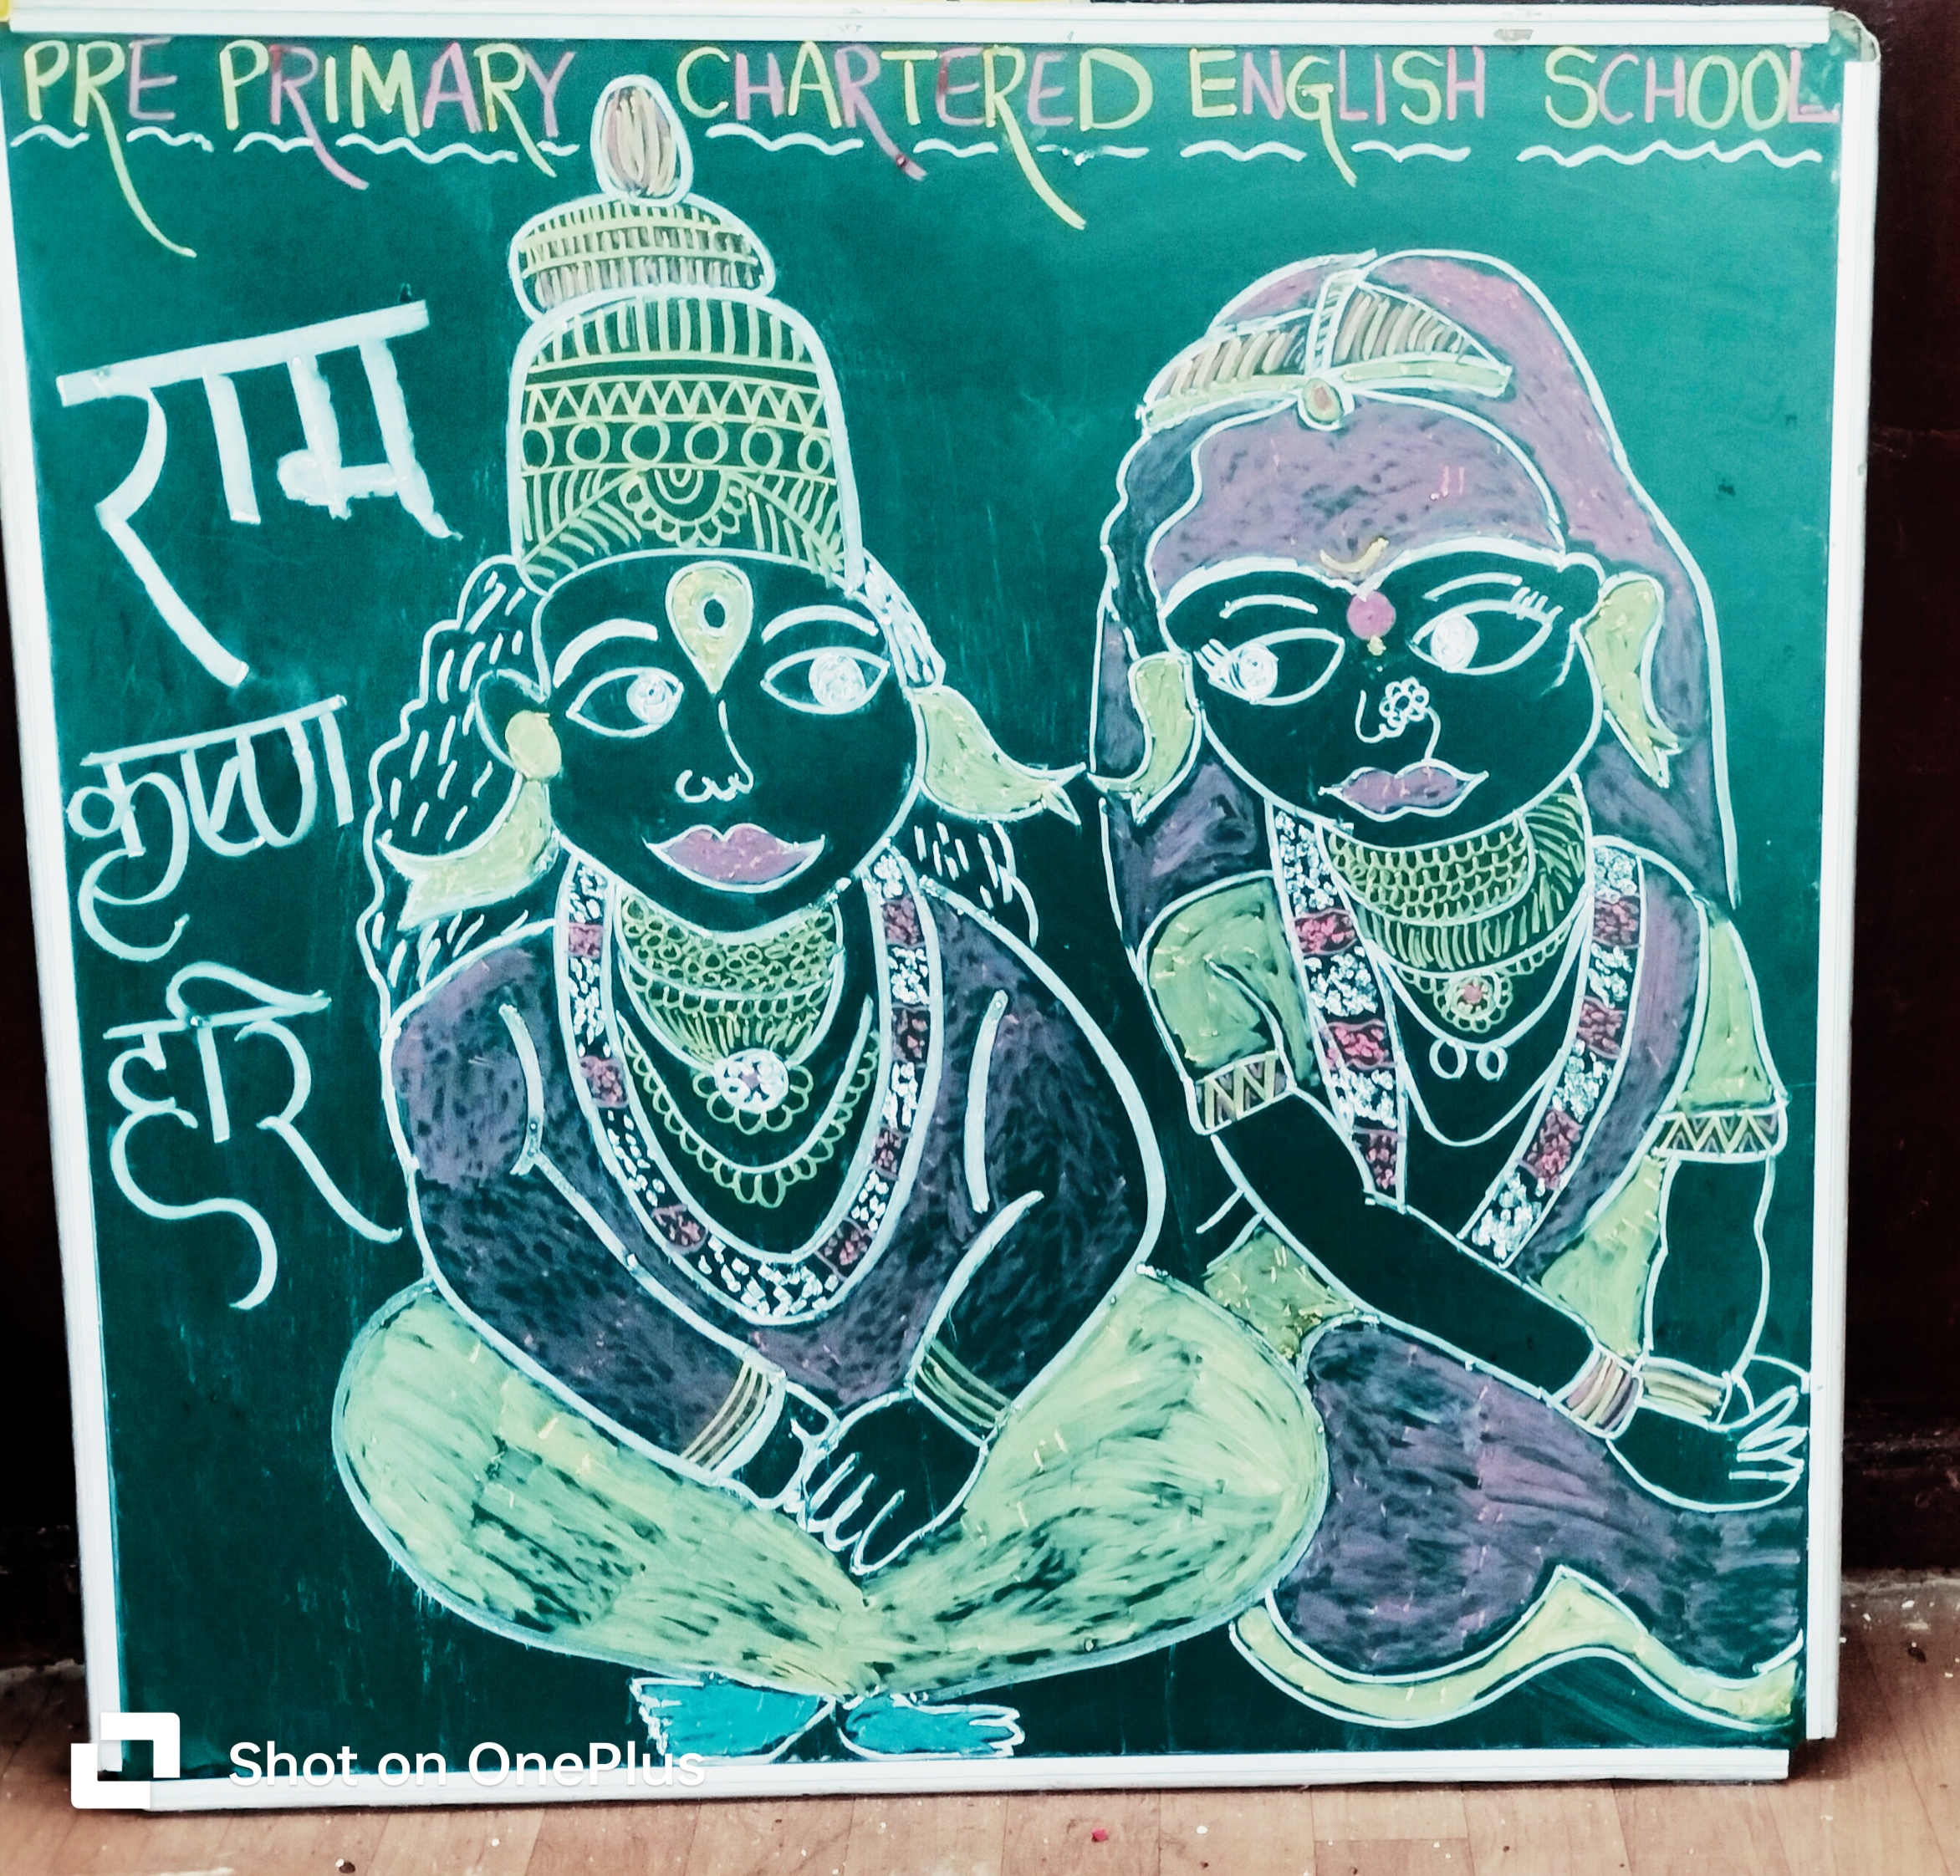 PRE PRIMARY CHARTERED ENGLISH SCHOOL
राम
कृष्ण
हरि
Shot on OnePlus